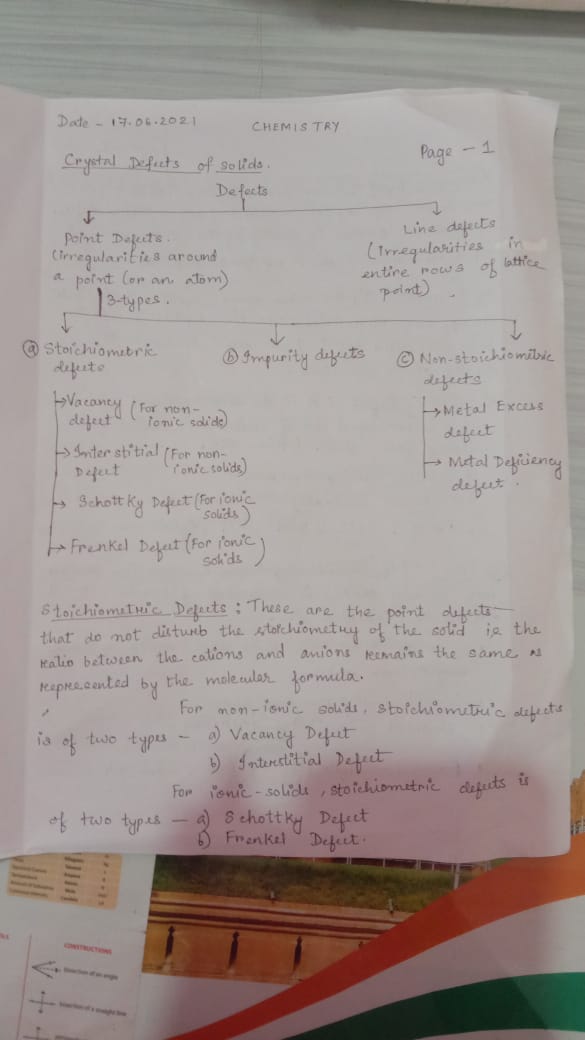 Date - 17.06.2021
CHEMISTRY
Page - 1
Crystal Defects of solids.
Defects
Point Defects.
(irregularities around
a point (or an atom)
3-types.
Line defects
(Irregularities in
entire rows of lattice
point).
(a) Stoichiometric
defects
→ Vacancy (For non-
defect ionic solids)
→ Interstitial (For non-
Defect ionic solids)
→ Schottky Defect (For ionic
solids)
→ Frenkel Defect (For ionic
solids)
(b) Impurity defects
(c) Non-stoichiometric
defects
→ Metal Excess
defect
→ Metal Deficiency
defect.
Stoichiometric Defects : These are the point defects
that do not disturb the stoichiometry of the solid i.e the
ratio between the cations and anions remains the same as
represented by the molecular formula.
For non-ionic solids, stoichiometric defects
is of two types - a) Vacancy Defect
b) Interstitial Defect
For ionic-solids, stoichiometric defects is
of two types - a) Schottky Defect
b) Frenkel Defect.
CONSTRUCTIONS
Bisection of an angle
Bisection of a straight line